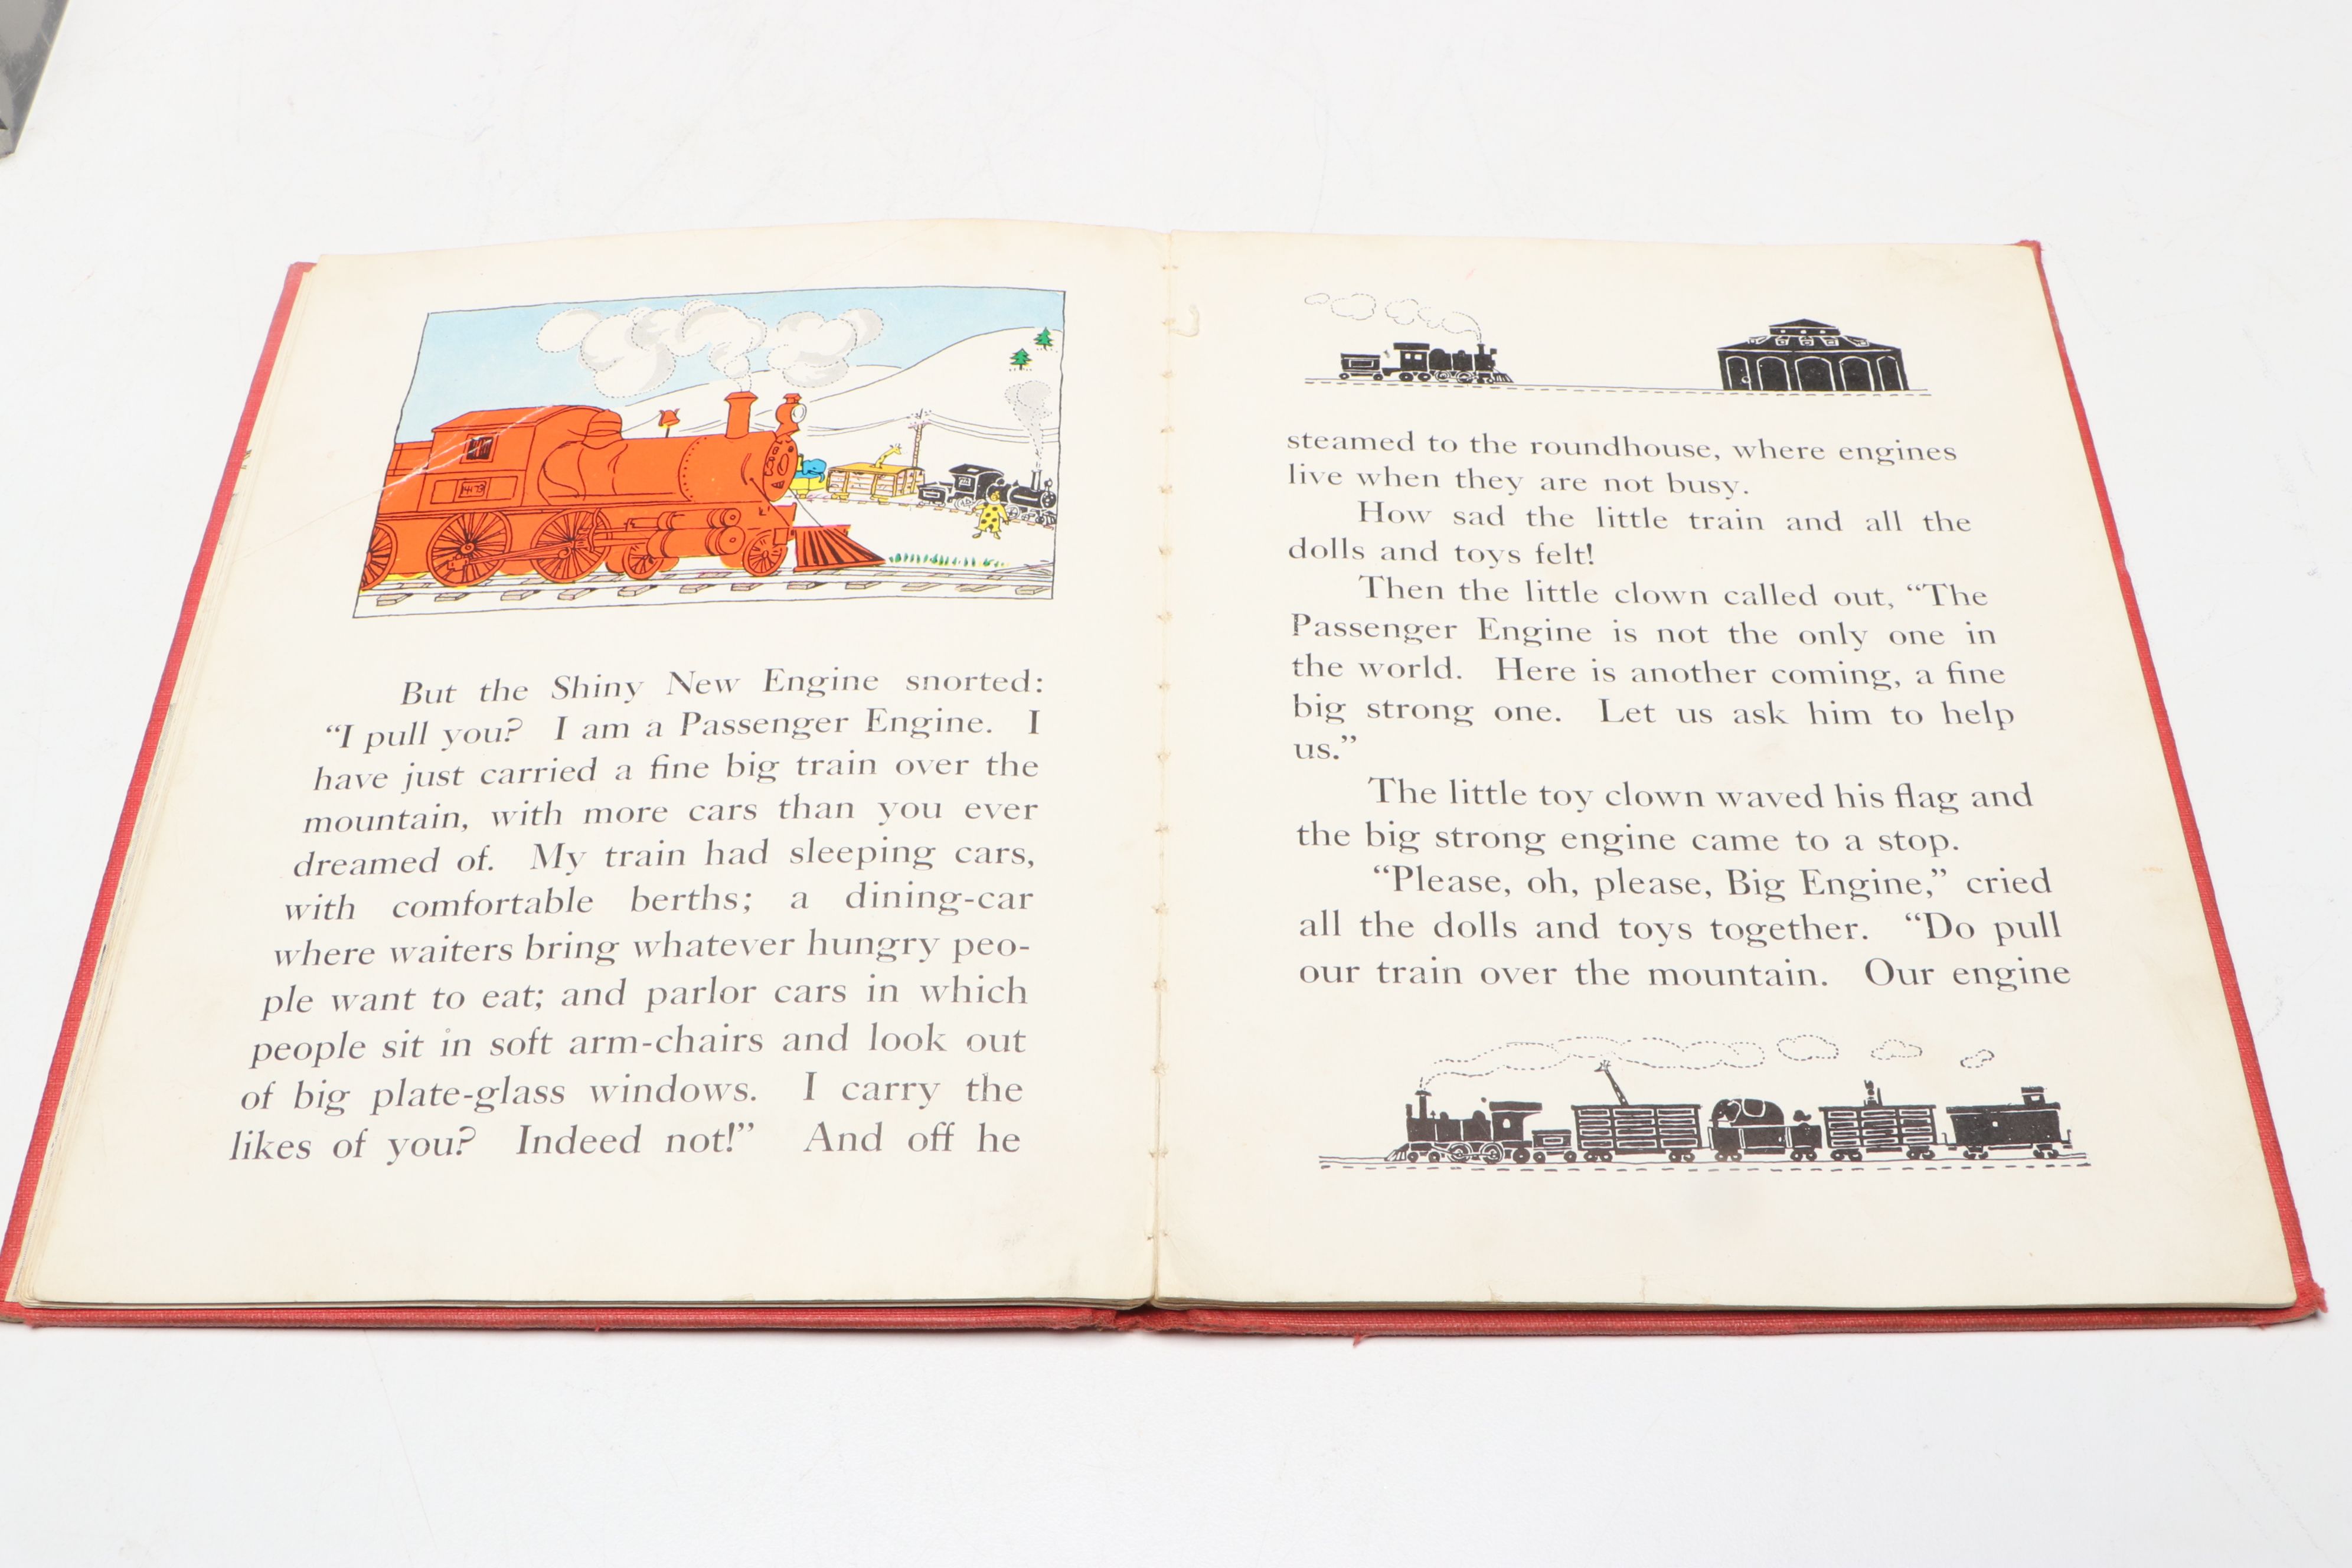 But the Shiny New Engine snorted:
“I pull you? I am a Passenger Engine. I
have just carried a fine big train over the
mountain, with more cars than you ever
dreamed of. My train had sleeping cars,
with comfortable berths; a dining-car
where waiters bring whatever hungry peo-
ple want to eat; and parlor cars in which
people sit in soft arm-chairs and look out
of big plate-glass windows. I carry the
likes of you? Indeed not!” And off he
steamed to the roundhouse, where engines
live when they are not busy.
How sad the little train and all the
dolls and toys felt!
Then the little clown called out, “The
Passenger Engine is not the only one in
the world. Here is another coming, a fine
big strong one. Let us ask him to help
us.”
The little toy clown waved his flag and
the big strong engine came to a stop.
“Please, oh, please, Big Engine,” cried
all the dolls and toys together. “Do pull
our train over the mountain. Our engine